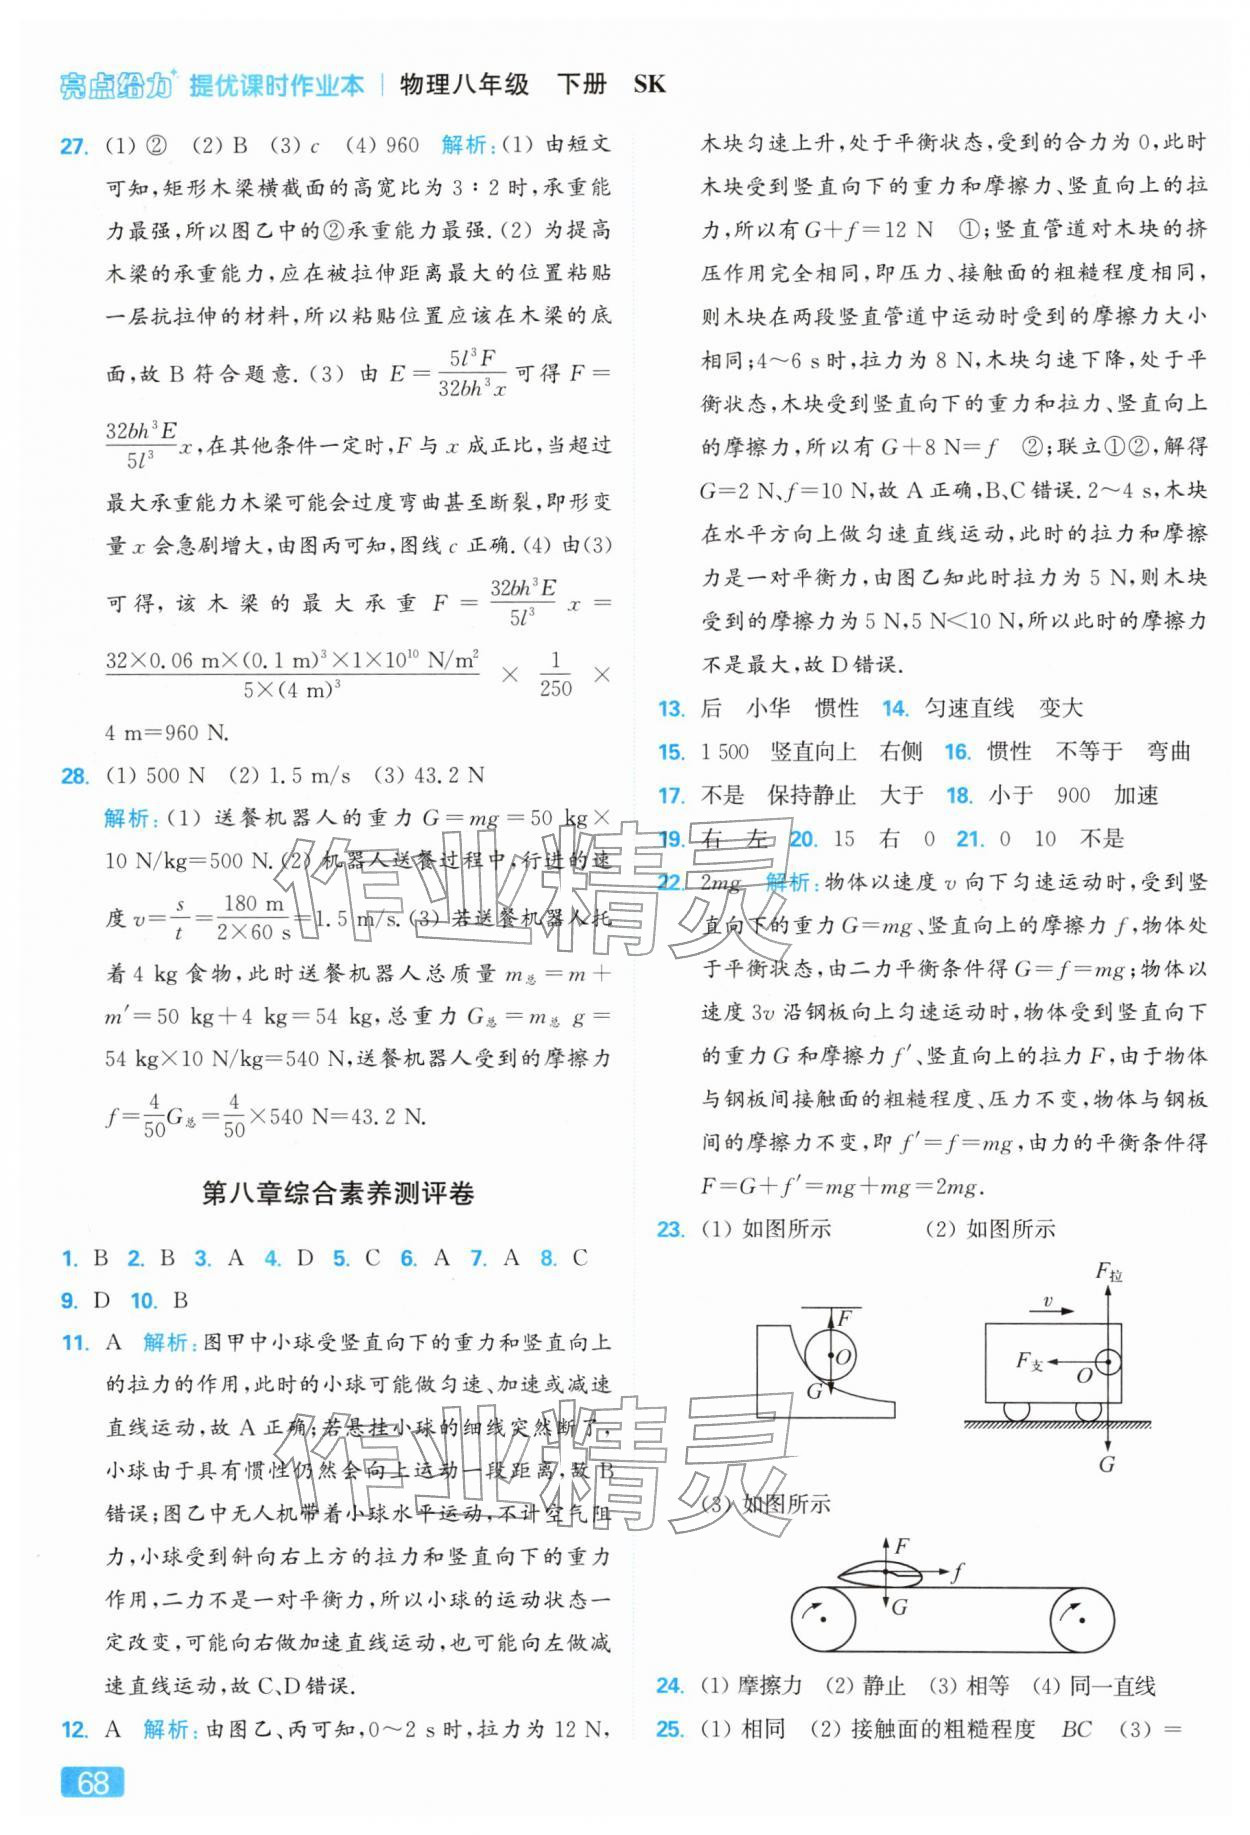 亮点给力 提优课时作业本 | 物理八年级 下册 SK
27. (1) ② (2) B (3) c (4) 960 解析:(1) 由短文
可知,矩形木梁横截面的高宽比为 3∶2 时,承重能
力最强,所以图乙中的②承重能力最强.(2) 为提高
木梁的承重能力,应在被拉伸距离最大的位置粘贴
一层抗拉伸的材料,所以粘贴位置应该在木梁的底
面,故 B 符合题意.(3) 由 E=5l³F/32bh³x 可得 F=
32bh³E/5l³ x,在其他条件一定时,F 与 x 成正比,当超过
最大承重能力木梁可能会过度弯曲甚至断裂,即形变
量 x 会急剧增大,由图丙可知,图线 c 正确.(4) 由(3)
可得,该木梁的最大承重 F=32bh³E/5l³ x=
32×0.06 m×(0.1 m)³×1×10¹⁰ N/m²/5×(4 m)³ × 1/250 ×
4 m=960 N.
28. (1) 500 N (2) 1.5 m/s (3) 43.2 N
解析:(1) 送餐机器人的重力 G=mg=50 kg×
10 N/kg=500 N.(2) 机器人送餐过程中,行进的速
度 v=s/t=180 m/2×60 s=1.5 m/s.(3) 若送餐机器人托
着 4 kg 食物,此时送餐机器人总质量 m总=m+
m′=50 kg+4 kg=54 kg,总重力 G总=m总 g=
54 kg×10 N/kg=540 N,送餐机器人受到的摩擦力
f=4/50 G总=4/50×540 N=43.2 N.
第八章综合素养测评卷
1. B 2. B 3. A 4. D 5. C 6. A 7. A 8. C
9. D 10. B
11. A 解析:图甲中小球受竖直向下的重力和竖直向上
的拉力的作用,此时的小球可能做匀速、加速或减速
直线运动,故 A 正确;若悬挂小球的细线突然断了,
小球由于具有惯性仍然会向上运动一段距离,故 B
错误;图乙中无人机带着小球水平运动,不计空气阻
力,小球受到斜向右上方的拉力和竖直向下的重力
作用,二力不是一对平衡力,所以小球的运动状态一
定改变,可能向右做加速直线运动,也可能向左做减
速直线运动,故 C、D 错误.
12. A 解析:由图乙、丙可知,0～2 s 时,拉力为 12 N,
68
木块匀速上升,处于平衡状态,受到的合力为 0,此时
木块受到竖直向下的重力和摩擦力、竖直向上的拉
力,所以有 G+f=12 N ①;竖直管道对木块的挤
压作用完全相同,即压力、接触面的粗糙程度相同,
则木块在两段竖直管道中运动时受到的摩擦力大小
相同;4～6 s 时,拉力为 8 N,木块匀速下降,处于平
衡状态,木块受到竖直向下的重力和拉力、竖直向上
的摩擦力,所以有 G+8 N=f ②;联立①②,解得
G=2 N、f=10 N,故 A 正确,B、C 错误.2～4 s,木块
在水平方向上做匀速直线运动,此时的拉力和摩擦
力是一对平衡力,由图乙知此时拉力为 5 N,则木块
受到的摩擦力为 5 N,5 N<10 N,所以此时的摩擦力
不是最大,故 D 错误.
13. 后 小华 惯性 14. 匀速直线 变大
15. 1 500 竖直向上 右侧 16. 惯性 不等于 弯曲
17. 不是 保持静止 大于 18. 小于 900 加速
19. 右 左 20. 15 右 0 21. 0 10 不是
22. 2mg 解析:物体以速度 v 向下匀速运动时,受到竖
直向下的重力 G=mg、竖直向上的摩擦力 f,物体处
于平衡状态,由二力平衡条件得 G=f=mg;物体以
速度 3v 沿钢板向上匀速运动时,物体受到竖直向下
的重力 G 和摩擦力 f′、竖直向上的拉力 F,由于物体
与钢板间接触面的粗糙程度、压力不变,物体与钢板
间的摩擦力不变,即 f′=f=mg,由力的平衡条件得
F=G+f′=mg+mg=2mg.
23. (1) 如图所示 (2) 如图所示
F
O
G
F拉
v
F支
O
G
(3) 如图所示
F
f
G
24. (1) 摩擦力 (2) 静止 (3) 相等 (4) 同一直线
25. (1) 相同 (2) 接触面的粗糙程度 BC (3) =
作业精灵
作业精灵